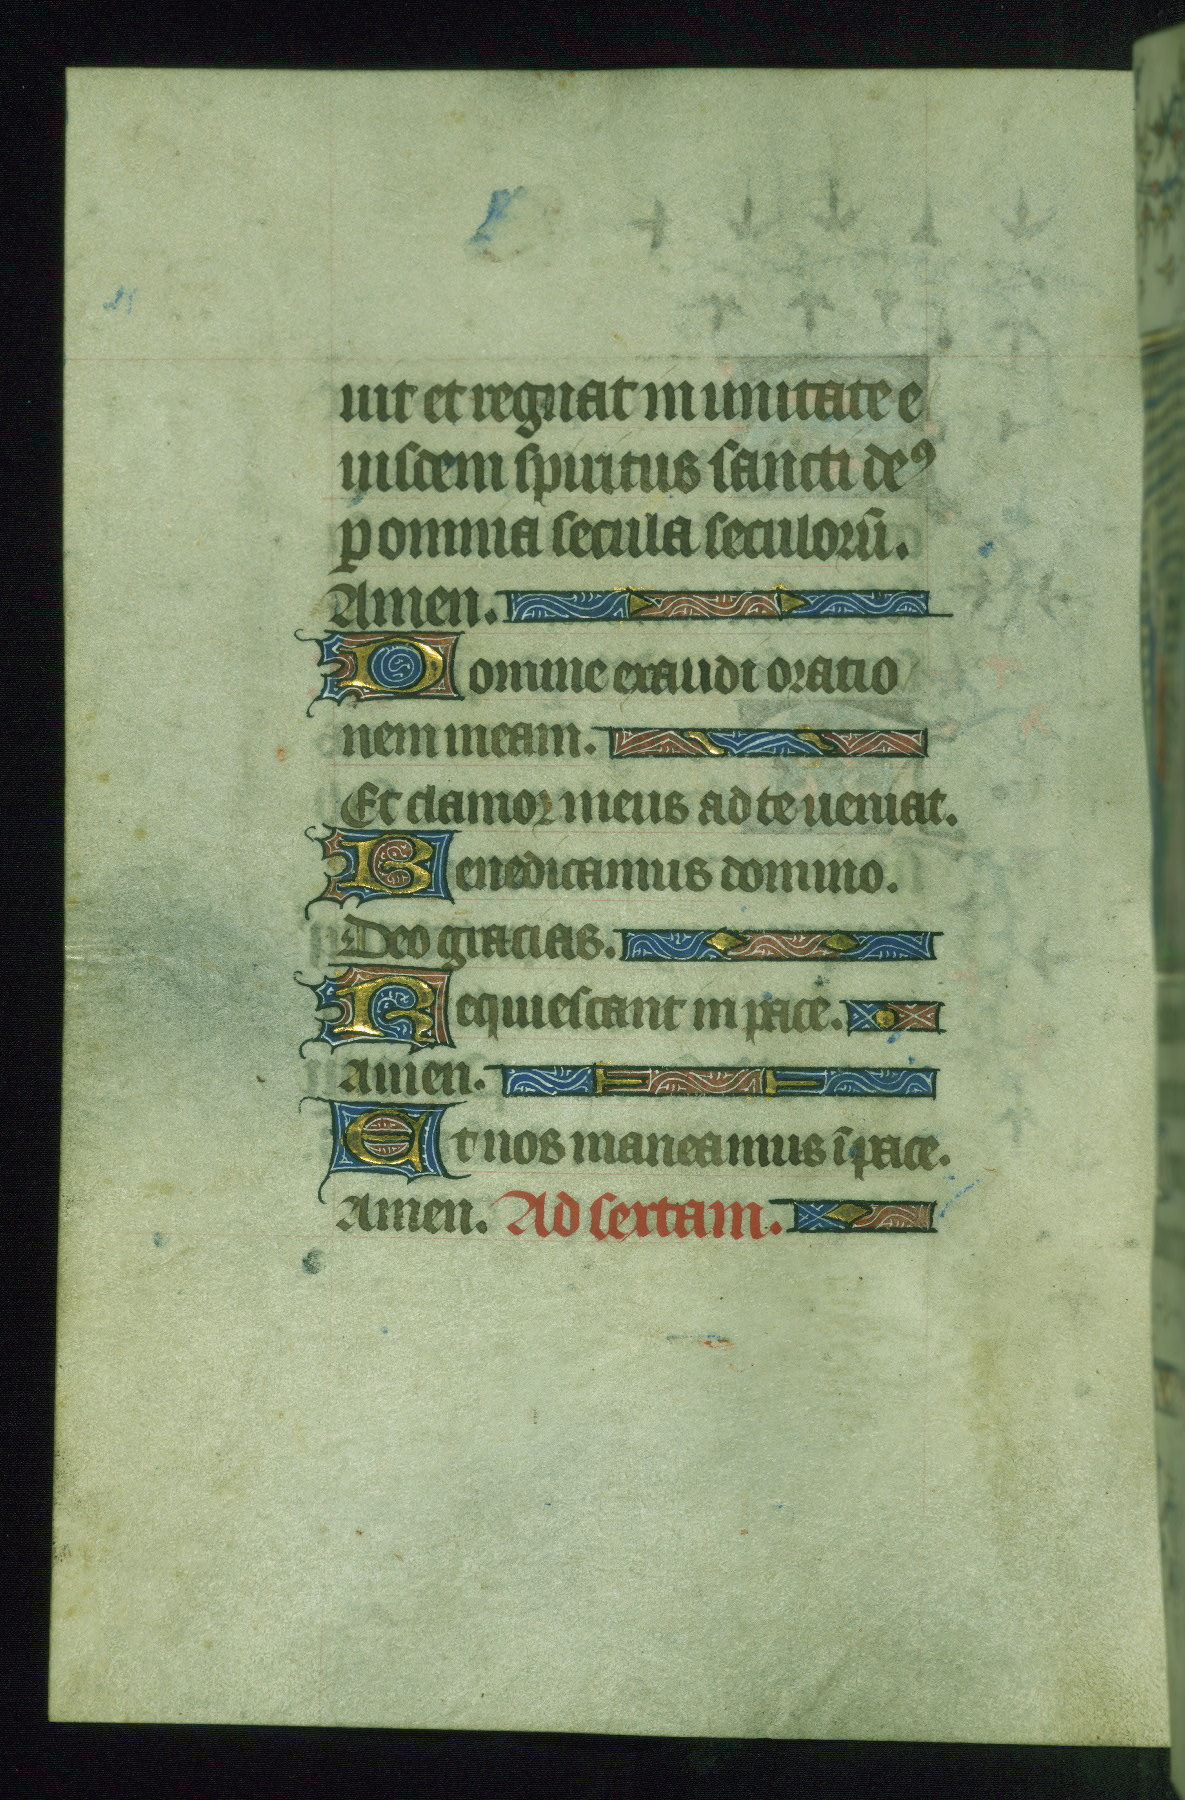 uit et regnat in unitate e
iusdem spiritus sancti deꝰ
ꝑ omnia secula seculorū.
Amen.
Domine exaudi oratio
nem meam.
Et clamor meus ad te ueniat.
Benedicamus domino.
Deo gracias.
Requiescant in pace.
Amen.
Et nos maneamus ī pace.
Amen. Ad sextam.